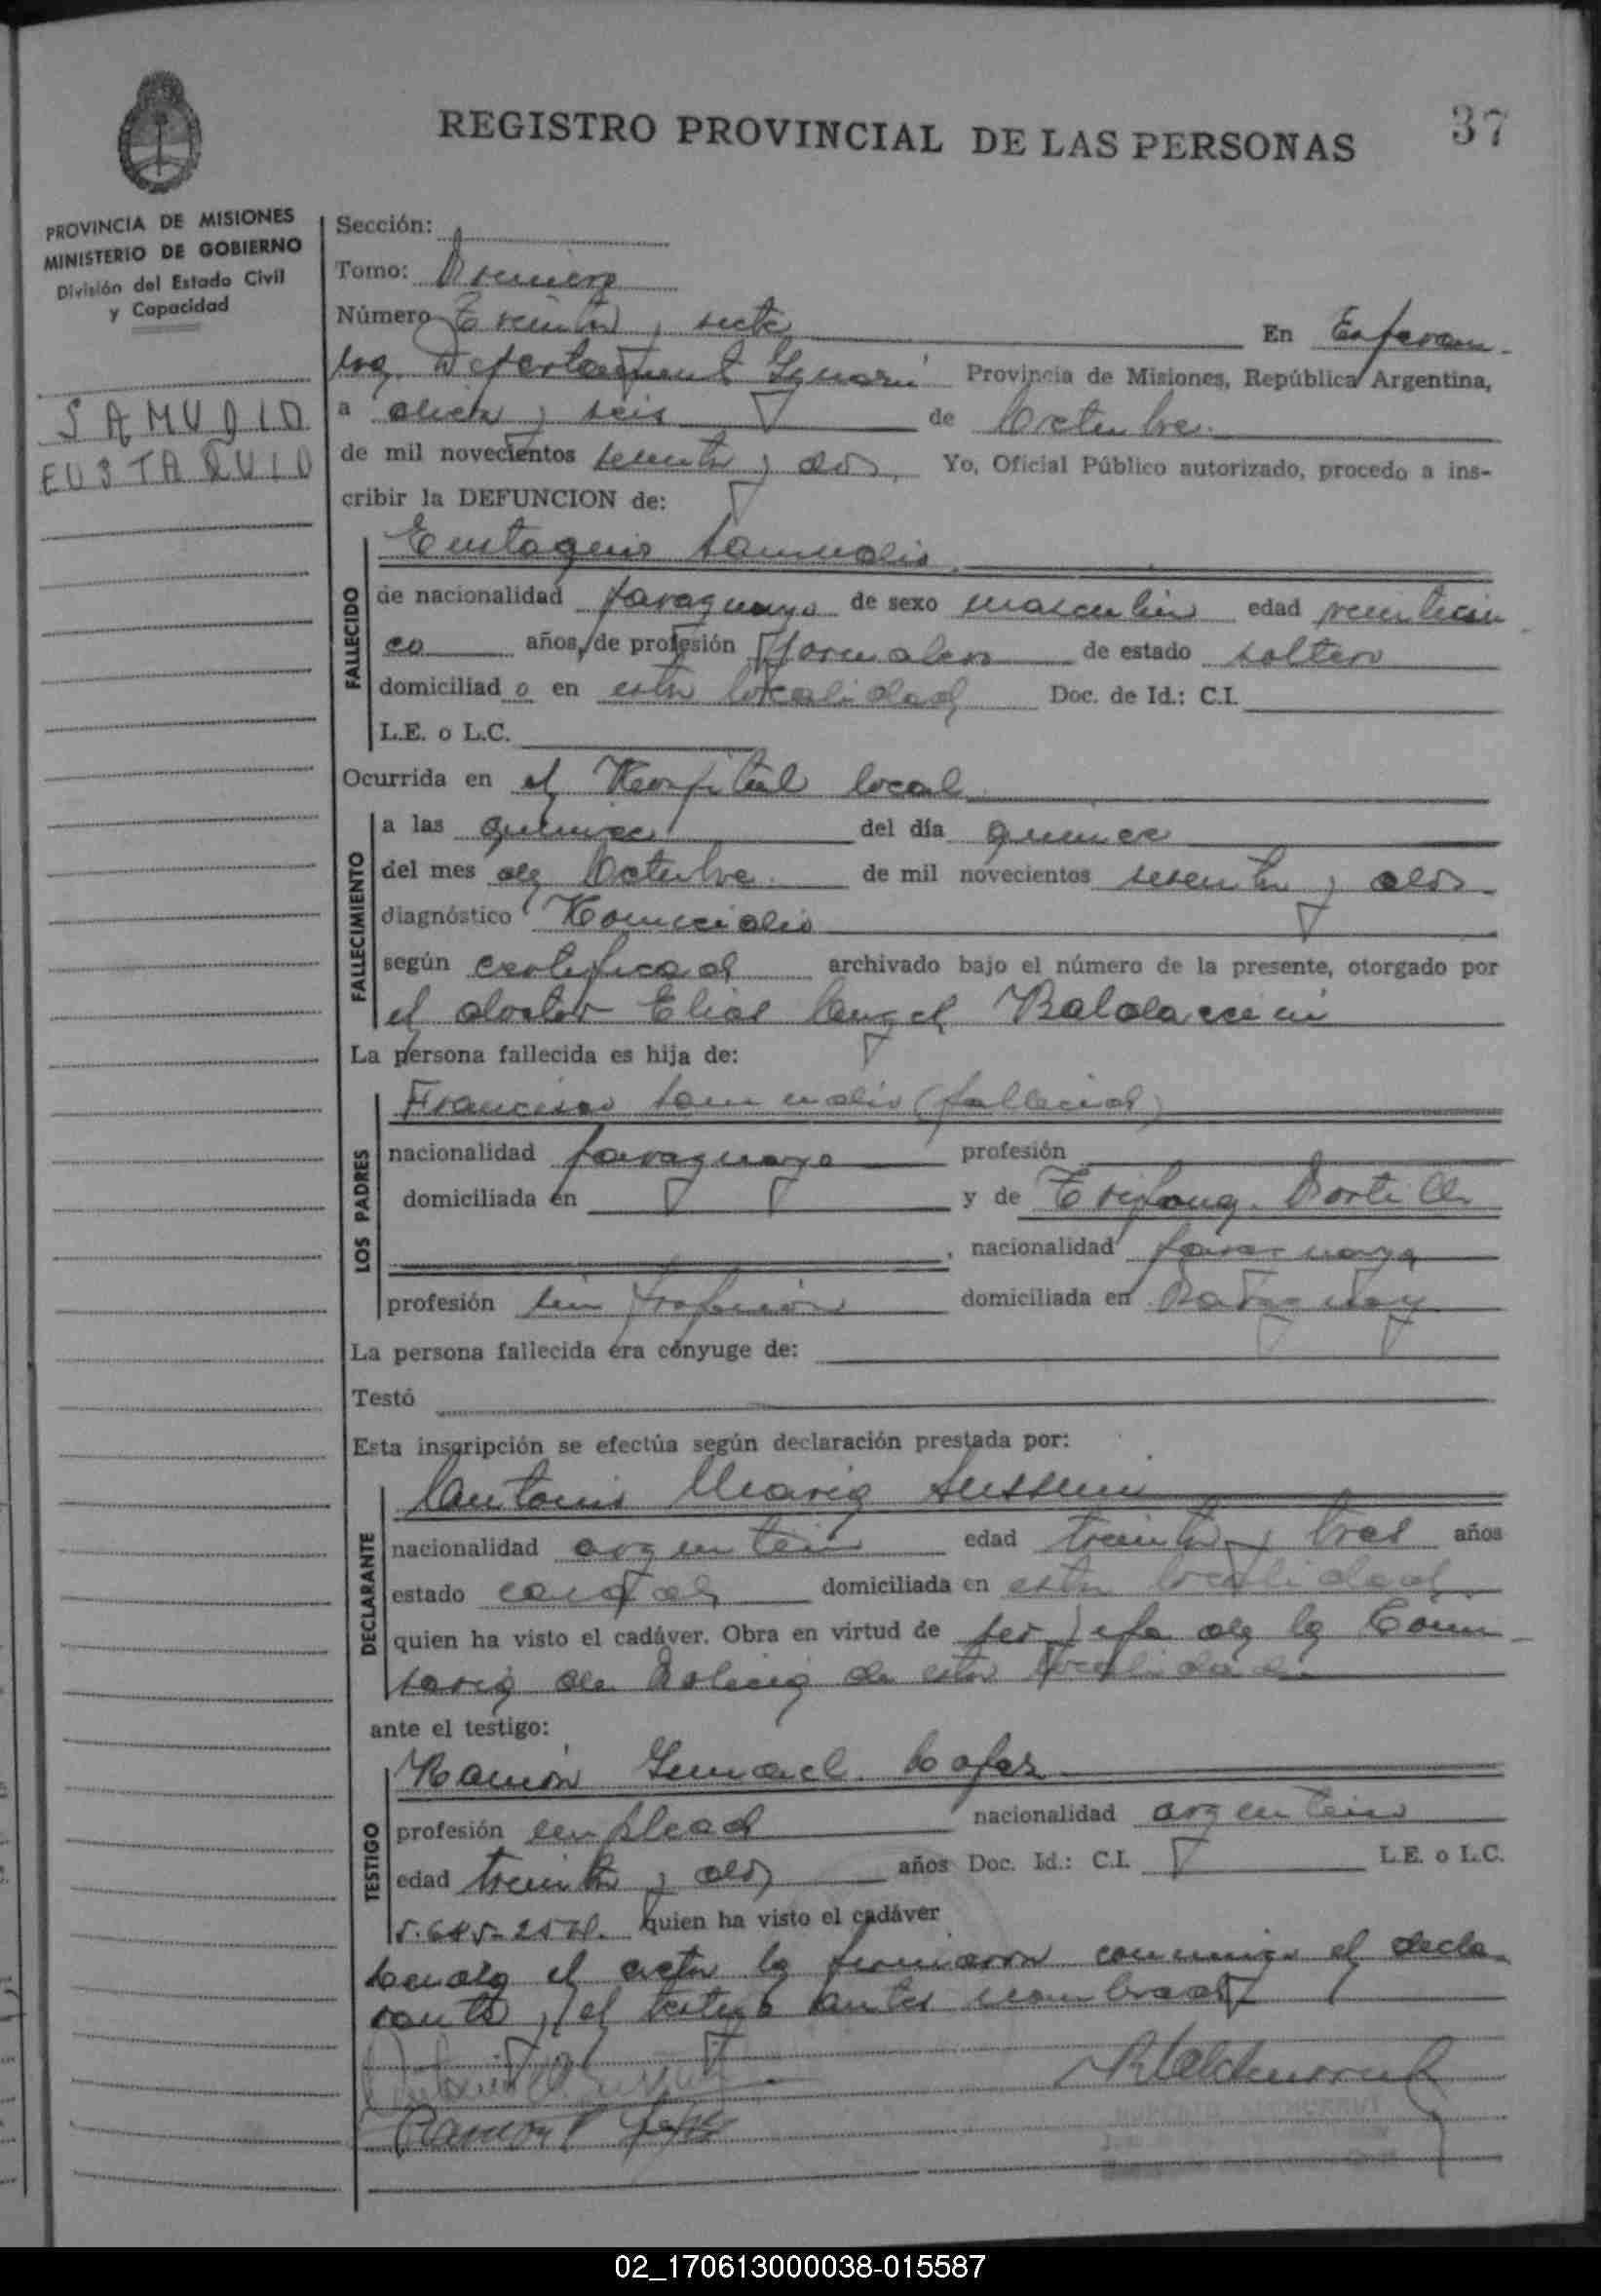 37
REGISTRO PROVINCIAL DE LAS PERSONAS
PROVINCIA DE MISIONES
MINISTERIO DE GOBIERNO
División del Estado Civil
y Capacidad
SAMUDIO
EUSTAQUIO
Sección:
Tomo: Primero
Número Treinta y siete En Esperan-
za Departamento Iguazú Provincia de Misiones, República Argentina,
a dieciseis de Octubre
de mil novecientos sesenta y dos, Yo, Oficial Público autorizado, procedo a ins-
cribir la DEFUNCION de:
FALLECIDO
Eustaquio Samudio
de nacionalidad paraguayo de sexo masculino edad veinticin
co años, de profesión Jornalero de estado soltero
domiciliado en esta localidad Doc. de Id.: C.I.
L.E. o L.C.
Ocurrida en el Hospital local
FALLECIMIENTO
a las quince del día quince
del mes de Octubre de mil novecientos sesenta y dos
diagnóstico Homicidio
según certificado archivado bajo el número de la presente, otorgado por
el doctor Elias Angel Baldaccini
La persona fallecida es hija de:
LOS PADRES
Francisco Samudio (fallecido)
nacionalidad paraguayo profesión
domiciliada en y de Trifona Portillo
, nacionalidad paraguaya
profesión sin profesión domiciliada en Paraguay
La persona fallecida era cónyuge de:
Testó
Esta inscripción se efectúa según declaración prestada por:
DECLARANTE
Antonio Maria
nacionalidad argentino edad treinta y tres años
estado casado domiciliada en esta localidad
quien ha visto el cadáver. Obra en virtud de ser Jefe de la Comi-
saria de Policia de esta localidad
ante el testigo:
TESTIGO
Ramón Ismael Lopez
profesión empleado nacionalidad argentino
edad treinta y dos años Doc. Id.: C.I. L.E. o L.C.
quien ha visto el cadáver
Leida el acta la firmaron conmigo el decla-
rante y el testigo antes nombrados
02_170613000038-015587